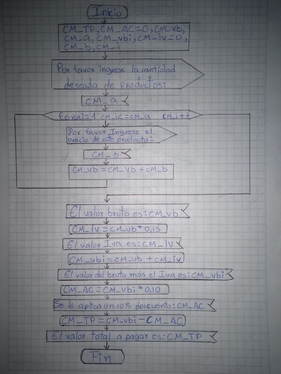 Inicio
CM_TP, CM_AC=0, CM_vb,
CM_a, CM_vbi, CM_iv=0,
CM_b, CM_i
Por favor ingrese la cantidad
deseada de productos:
CM_a
CM_i=1 CM_i<=CM_a CM_i++
Por favor Ingrese el
precio de este producto:
CM_b
CM_vb = CM_vb + CM_b
El valor bruto es: CM_vb
CM_iv = CM_vb * 0,15
El valor Iva es: CM_iv
CM_vbi = CM_vb + CM_iv
El valor del bruto mas el Iva es: CM_vbi
CM_AC = CM_vbi * 0,10
Se le aplica un 10% descuento: CM_AC
CM_TP = CM_vbi - CM_AC
El valor total a pagar es: CM_TP
Fin